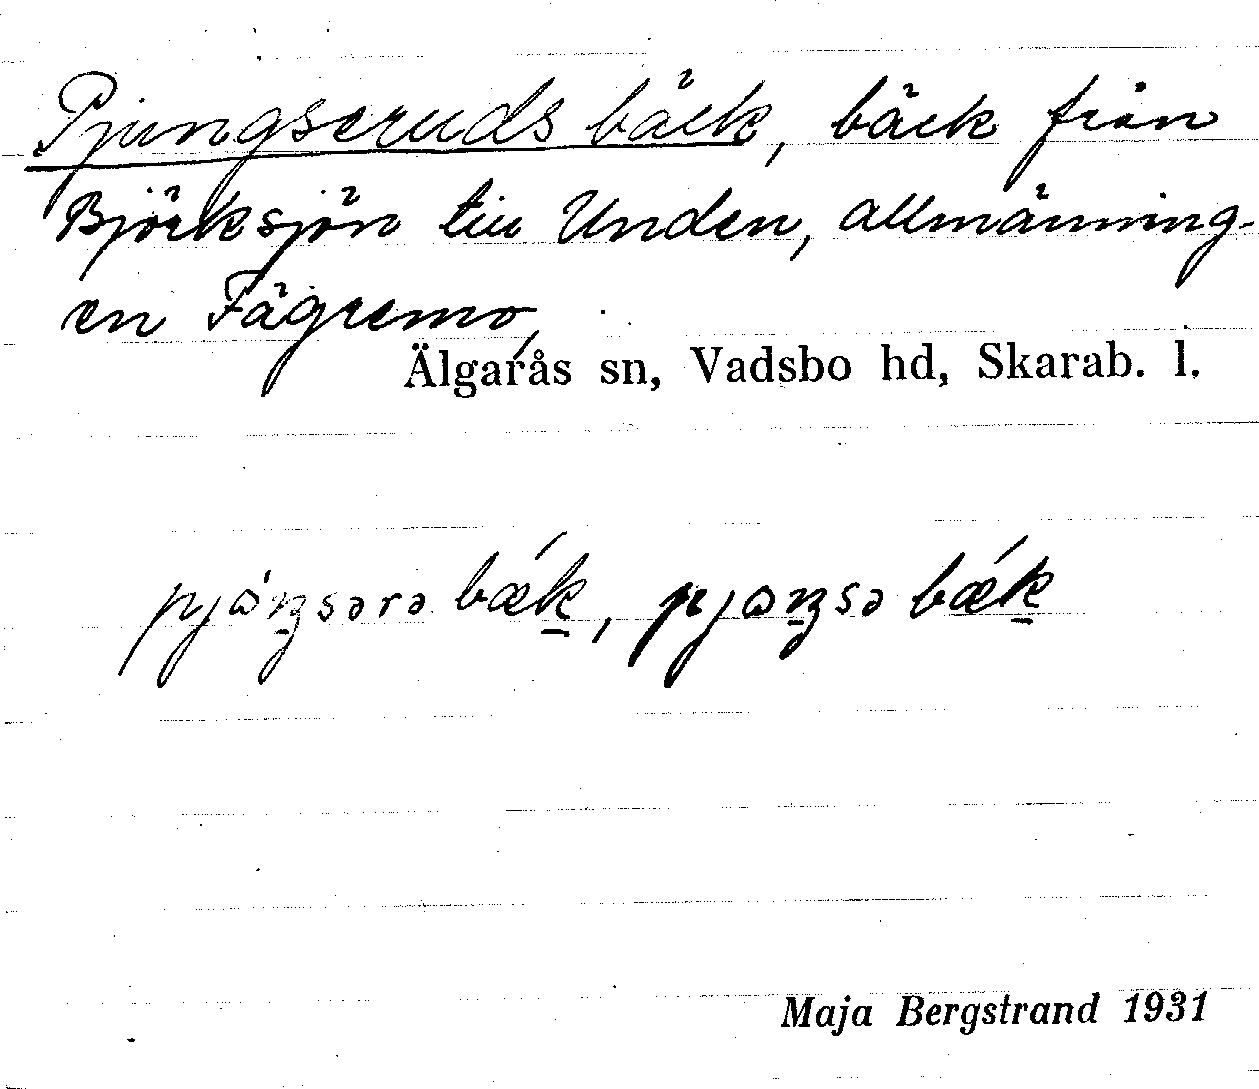 Pjungseruds bäck, bäck från
Björksjön till Unden, allmänning-
en Fägremo,
Älgarås sn, Vadsbo hd, Skarab. l.
pjɷ́ŋsərə bǽk̲, pjɷŋsə bǽk̲
Maja Bergstrand 1931